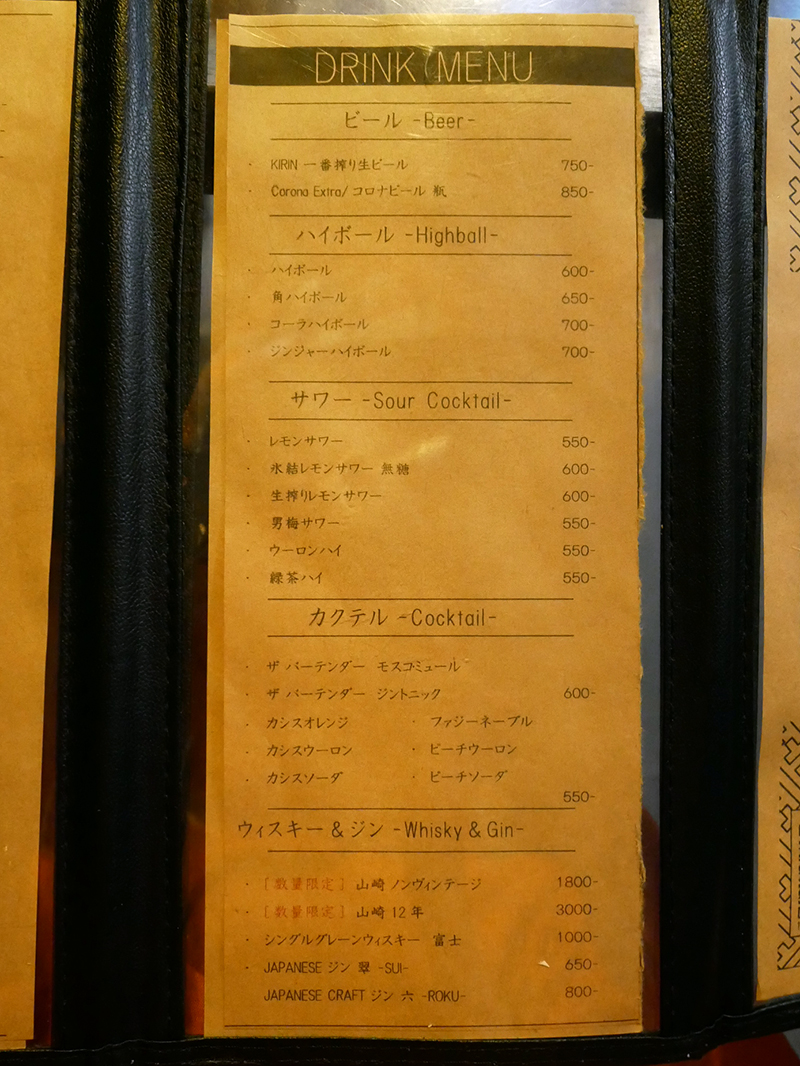 DRINK MENU
ビール -Beer-
・ KIRIN 一番搾り生ビール 750-
・ Corona Extra/コロナビール 瓶 850-
ハイボール -Highball-
・ ハイボール 600-
・ 角ハイボール 650-
・ コーラハイボール 700-
・ ジンジャーハイボール 700-
サワー -Sour Cocktail-
・ レモンサワー 550-
・ 氷結レモンサワー 無糖 600-
・ 生搾りレモンサワー 600-
・ 男梅サワー 550-
・ ウーロンハイ 550-
・ 緑茶ハイ 550-
カクテル -Cocktail-
・ ザ バーテンダー モスコミュール
・ ザ バーテンダー ジントニック 600-
・ カシスオレンジ ・ ファジーネーブル
・ カシスウーロン ・ ピーチウーロン
・ カシスソーダ ・ ピーチソーダ
550-
ウィスキー & ジン -Whisky & Gin-
・ [数量限定] 山崎 ノンヴィンテージ 1800-
・ [数量限定] 山崎 12年 3000-
・ シングルグレーンウィスキー 富士 1000-
・ JAPANESE ジン 翠 -SUI- 650-
JAPANESE CRAFT ジン 六 -ROKU- 800-